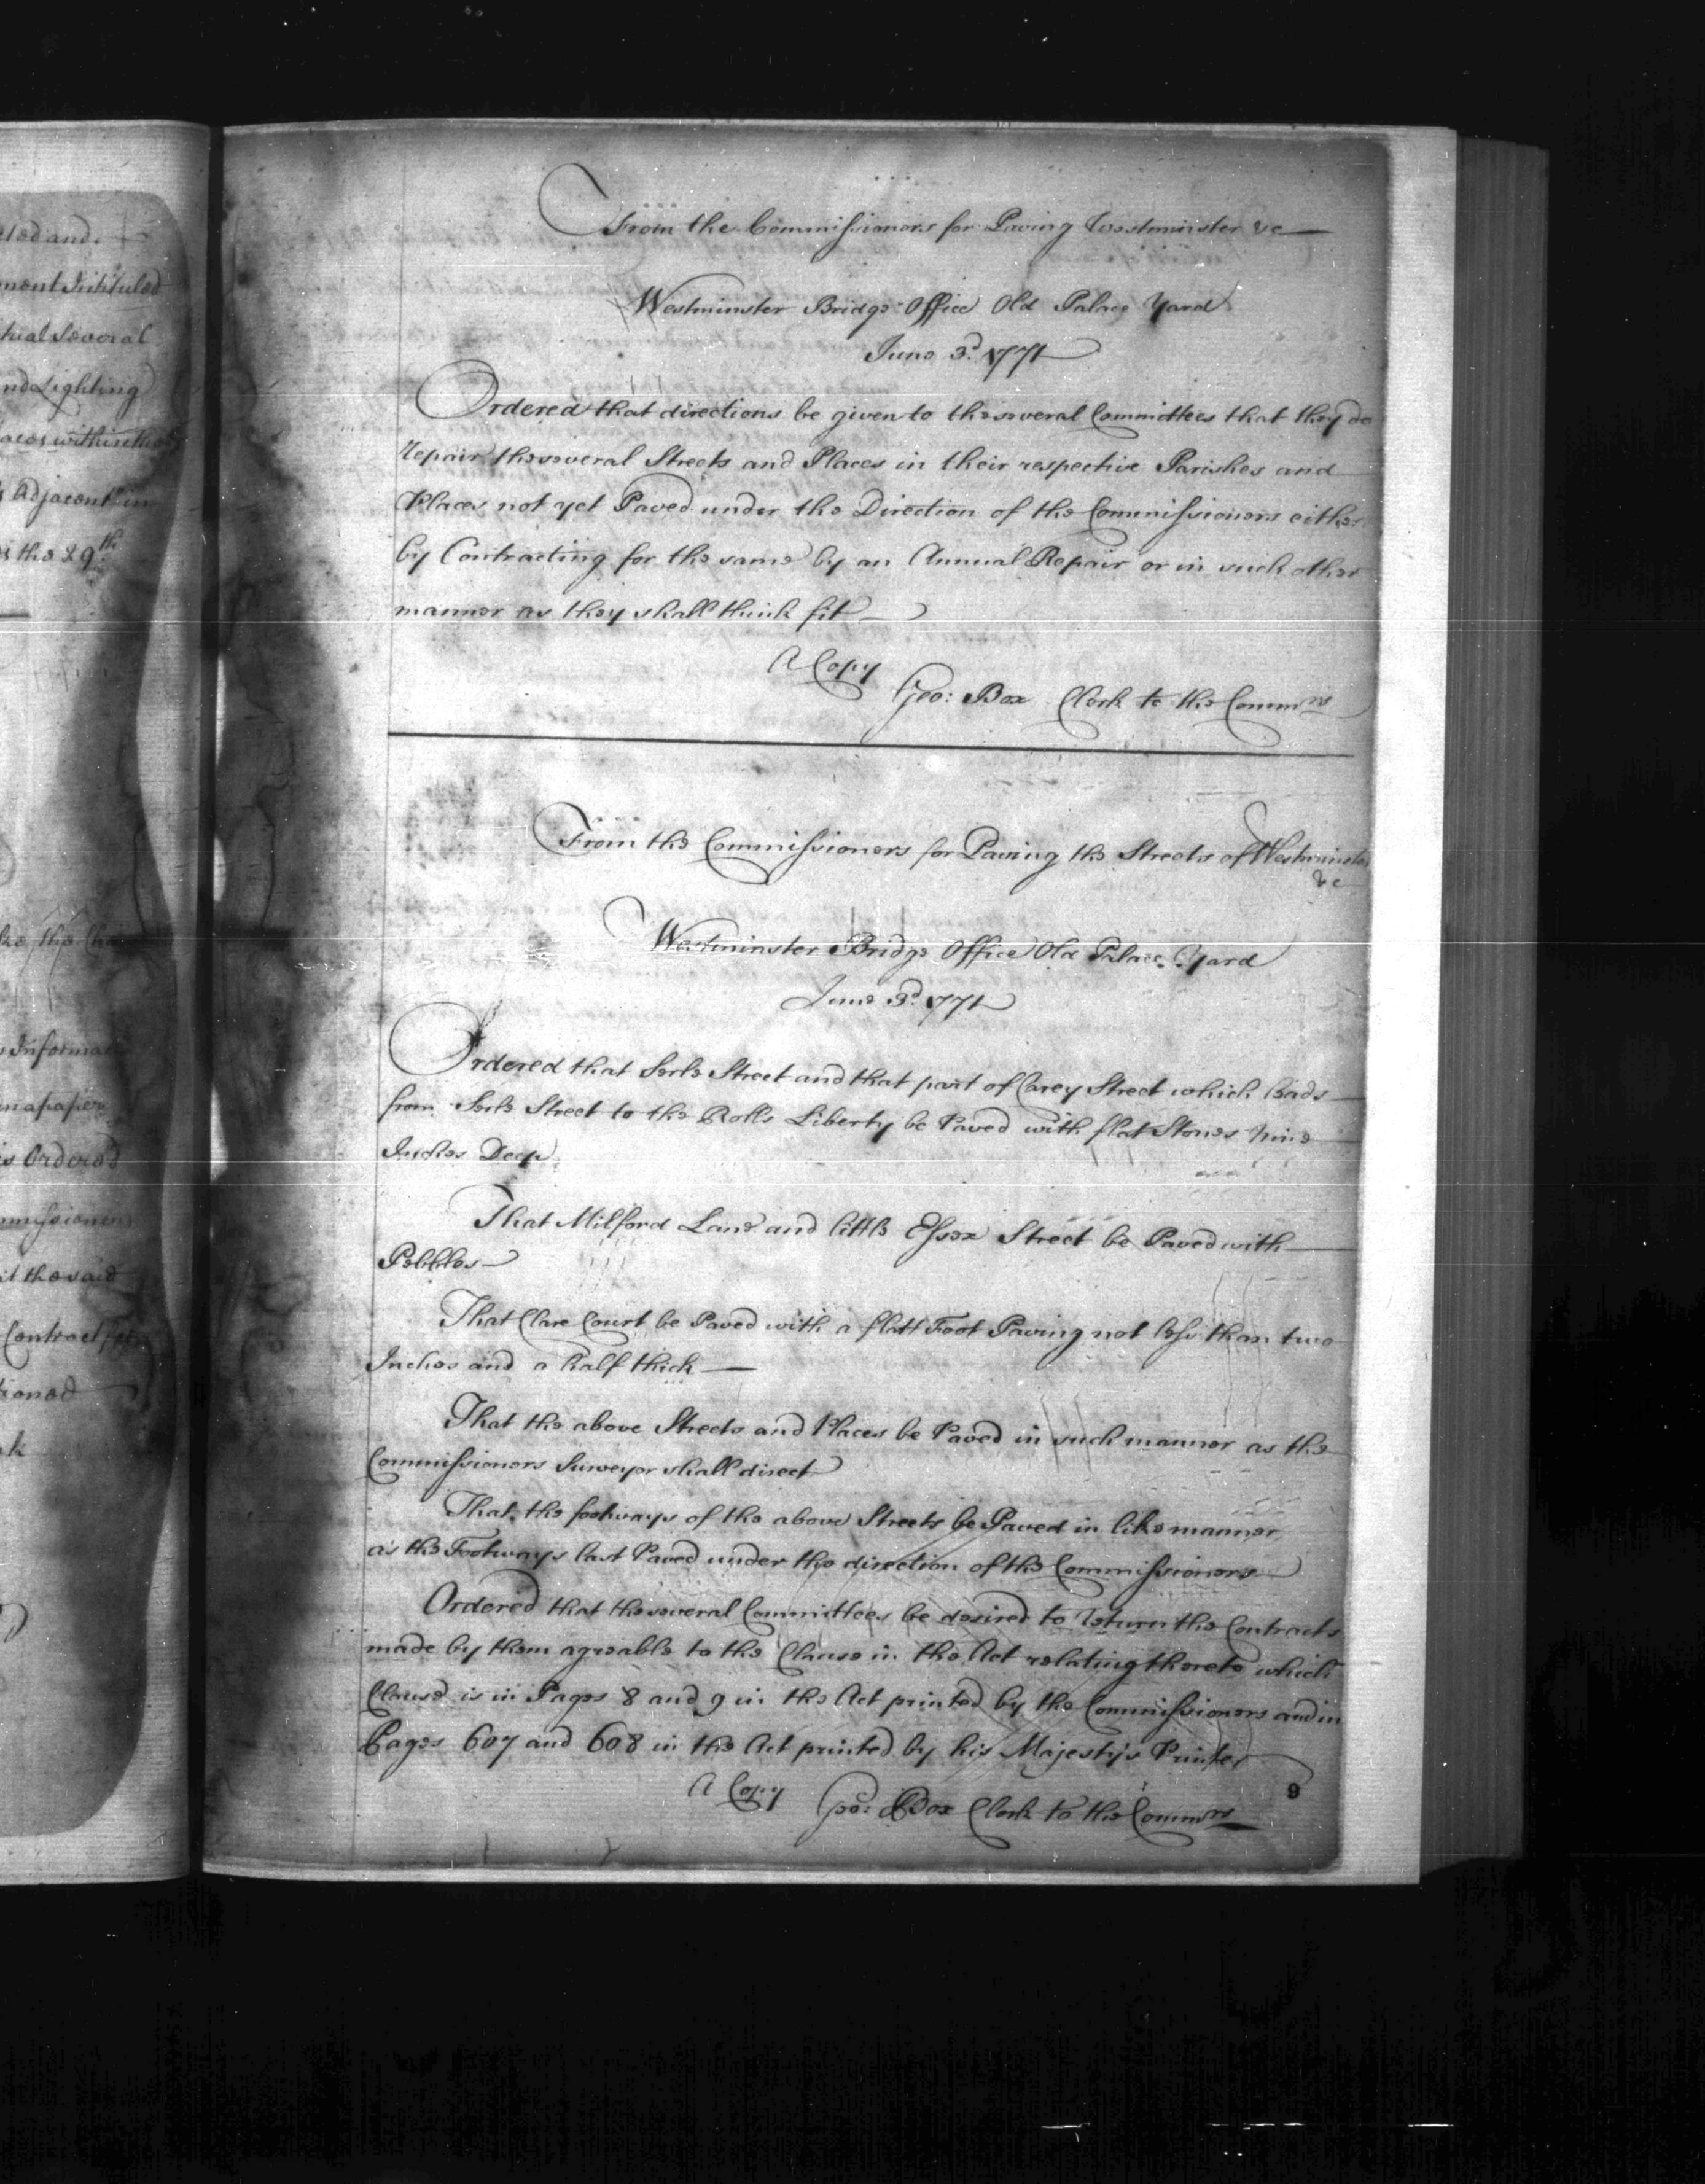 ted and
ment Intituled
tual several
nd Lighting
aces within the
s Adjacent in
s the 29th.
Informa
in a paper
is Ordered
mmissioners
it the said
Contract for
tioned
From the Commissioners for Paving Westminster &c
Westminster Bridge Office Old Palace Yard
June 3d. 1771
Ordered that directions be given to the several Committees that they do
repair the several Streets and Places in their respective Parishes and
Places not yet Paved under the Direction of the Commissioners either
by Contracting for the same by an Annual Repair or in such other
manner as they shall think fit
A Copy
Geo: Box Clerk to the Commrs
From the Commissioners for Paving the Streets of Westminster
&c
Westminster Bridge Office Old Palace Yard
June 3d. 1771
Ordered that Serle Street and that part of Carey Street which leads
from Serle Street to the Rolls Liberty be Paved with flat Stones Nine
Inches Deep
That Milford Lane and little Essex Street be Paved with
Pebbles
That Clare Court be Paved with a flatt Foot Paving not less than two
Inches and a half thick
That the above Streets and Places be Paved in such manner as the
Commissioners Surveyor shall direct
That the footways of the above Streets be Paved in like manner
as the Footways last Paved under the direction of the Commissioners
Ordered that the several Committees be desired to return the Contracts
made by them agreable to the Clause in the Act relating thereto which
Clause is in Pages 8 and 9 in the Act printed by the Commissioners and in
Pages 607 and 608 in the Act printed by his Majesty's Printer
A Copy
9
Geo: Box Clerk to the Commrs